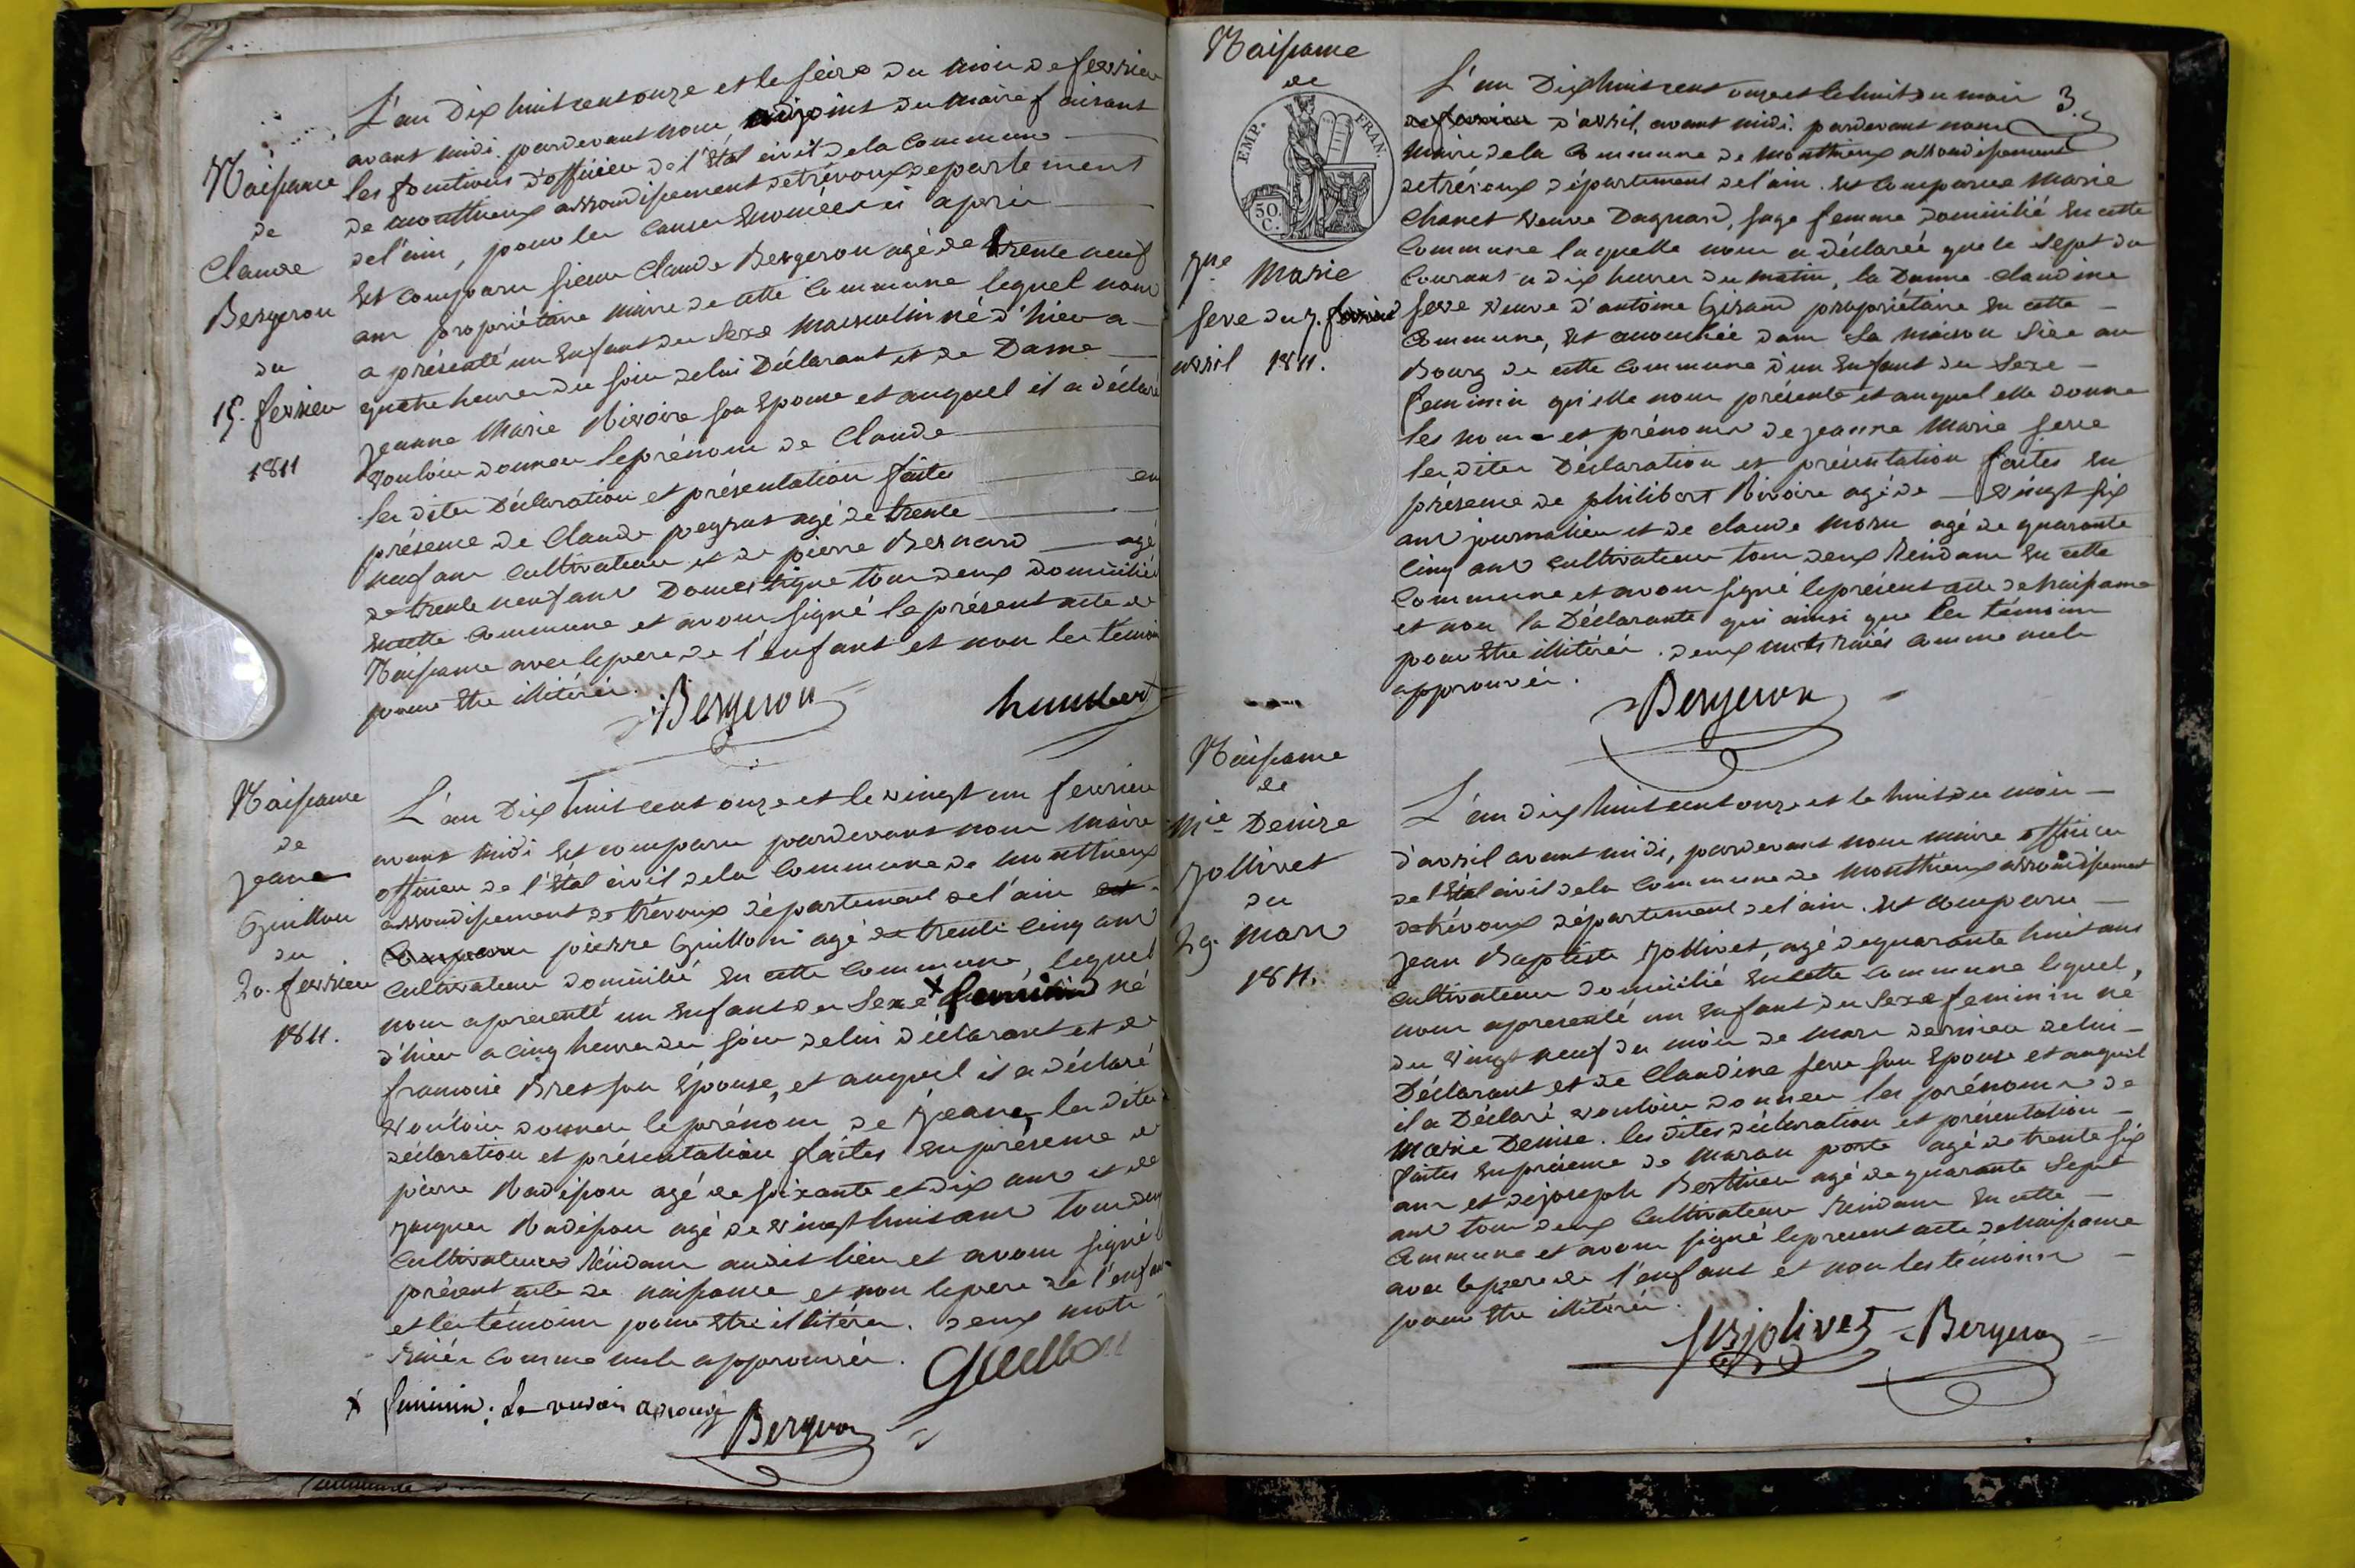 Naissance
de
Claude
Bergeron
du
15. fevrier
1811
L'an Dix huit cent onze et le seize du mois de fevrier
avant midi pardevant nous, adjoint du maire faisant
les fonctions d'officier de l'Etat civil de la Commune
de monthieux arrondissement de trévoux departement
de l'ain, pour les causes Enoncées ci après
Est comparu sieur Claude Bergeron agé de trente neuf
ans propriétaire maire de cette Commune lequel nous
a présenté un Enfant du Sexe Masculin né d'hier a
quatre heures du soir de lui Déclarant et de Dame
Jeanne Marie Rivoire son Epouse et auquel il a déclaré
vouloir donner le prénom de Claude
les dites Déclaration et présentation faites en
présence de Claude peyrat agé de trente
neuf ans cultivateur et de pierre Bernard agé
de trente neuf ans Domestique tous deux domiciliés
En cette Commune et avons signé le présent acte de
Naissance avec le pere de l'enfant et non les temoins
pour Etre illitérés.
Bergeron humbert
Naissance
de
Jeane
Guillon
du
20. fevrier
1811.
L'an Dix huit cent onze et le vingt un fevrier
avant midi Est comparu pardevant nous Maire
officier de l'Etat civil de la Commune de monthieux
arrondissement de trévoux département de l'ain est
Comparu pierre Guillon agé de trente cinq ans
Cultivateur domicilié En cette Commune, lequel
nous a presenté un Enfant du Sexe x feminin né
d'hier a cinq heures du soir de lui déclarant et de
francoise Bres son Épouse, et auquel il a déclaré
vouloir donner le prénom de Jeane, les dites
déclaration et présentation faites En présence de
pierre Radisson agé de soixante et dix ans et de
Jacques Radisson agé de vingt huit ans tous deux
Cultivateurs Résidans audit lieu et avons signé le
présent acte de naissance et non le pere de l'enfant
et les témoins pour Etre illitérés. deux mots
Raiés comme nuls approuvés. Guillon
x feminin: Le renvoi aprouvé
Bergeron
Naissance
de
EMP. FRAN.
50. C.
Jne Marie
Seve du 7. fevrier
avril 1811.
3.
L'an Dix huit cent onze et le huit du mois
de fevrier d'avril, avant midi. pardevant nous
Maire de la Commune de Monthieux arrondissement
de trévoux département de l'ain. Est Comparue Marie
Chanet veuve Dagnard, sage femme domicilié En cette
Commune laquelle nous a déclarée que le Sept du
Courant a dix heures du matin, la Dame Claudine
Seve veuve d'antoine Girand propriétaire En cette
Commune, Est accouchée dans Sa maison Sise au
Bourg de cette Commune d'un Enfant du Sexe
feminin qu'elle nous présente et auquel elle donne
les nom et prénoms de Jeanne Marie Seve
les dites Déclaration et présentation faites En
présence de philibert Rivoire agé de vingt six
ans journalier et de claude Moru agé de quarante
Cinq ans cultivateur tous deux Résidans En cette
Commune et avons signé le présent acte de Naissance
et non la Déclarante qui ainsi que les témoins
pour Etre illitérés. deux mots raiés comme nuls
approuvés.
Bergeron
Naissance
de
Mie Denise
Jollivet
du
29. Mars
1811.
L'an dix huit cent onze et le huit du mois
d'avril avant midi, pardevant nous maire officier
de l'Etat civil de la Commune de Monthieux arrondissement
de trévoux département de l'ain. Est Comparu
Jean Baptiste Jollivet, agé de quarante huit ans
Cultivateur domicilié En cette Commune lequel,
nous a presenté un Enfant du Sexe feminin né
du vingt neuf du mois de Mars dernier de lui
Déclarant et de Claudine Seve son Epouse et auquel
il a Déclaré vouloir donner les prénoms de
Marie Denise. les dites déclaration et présentation
faites En présence de Maran porte agé de trente six
ans et de joseph Berthier agé de quarante Sept
ans tous deux Cultivateurs Résidans En cette
Commune et avons signé le present acte de Naissance
avec le pere de l'enfant et non les témoins
pour Etre illitérés.
jolivet Bergeron